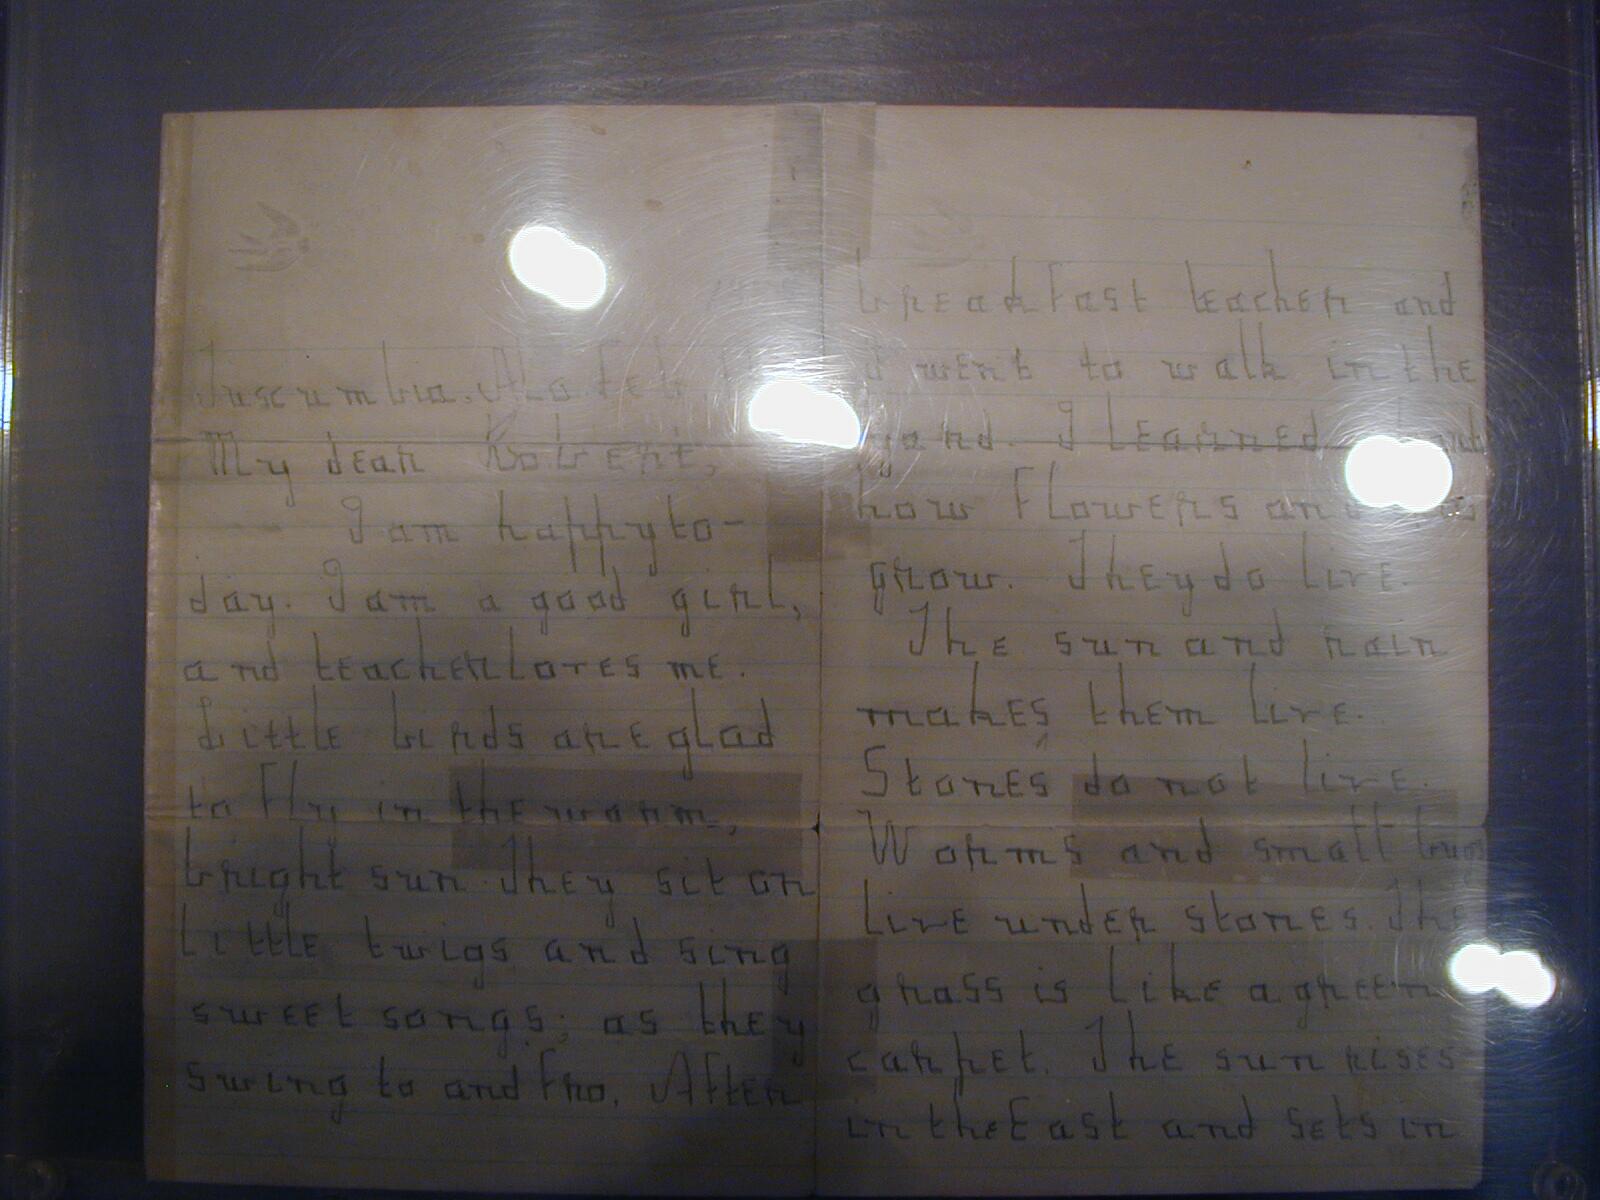 Tuscumbia. Ala. Feb.
My dear Robert,
I am happy to-
day. I am a good girl,
and teacher loves me.
Little birds are glad
to fly in the warm,
bright sun. They sit on
little twigs and sing
sweet songs; as they
swing to and fro. After
breakfast teacher and
I went to walk in the
yard. I learned
how flowers and
grow. They do live.
The sun and rain
makes them live.
Stones do not live.
Worms and small bugs
live under stones. The
grass is like a green
carpet. The sun rises
in the East and sets in